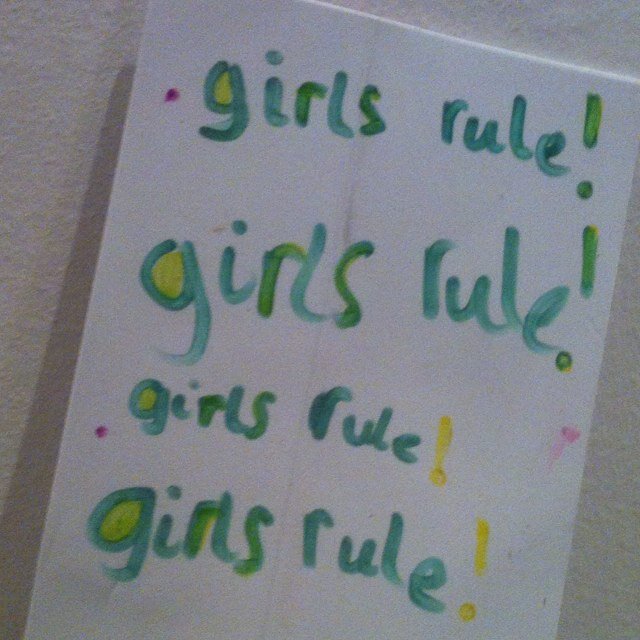 girls rule!
girls rule!
girls rule!
girls rule!